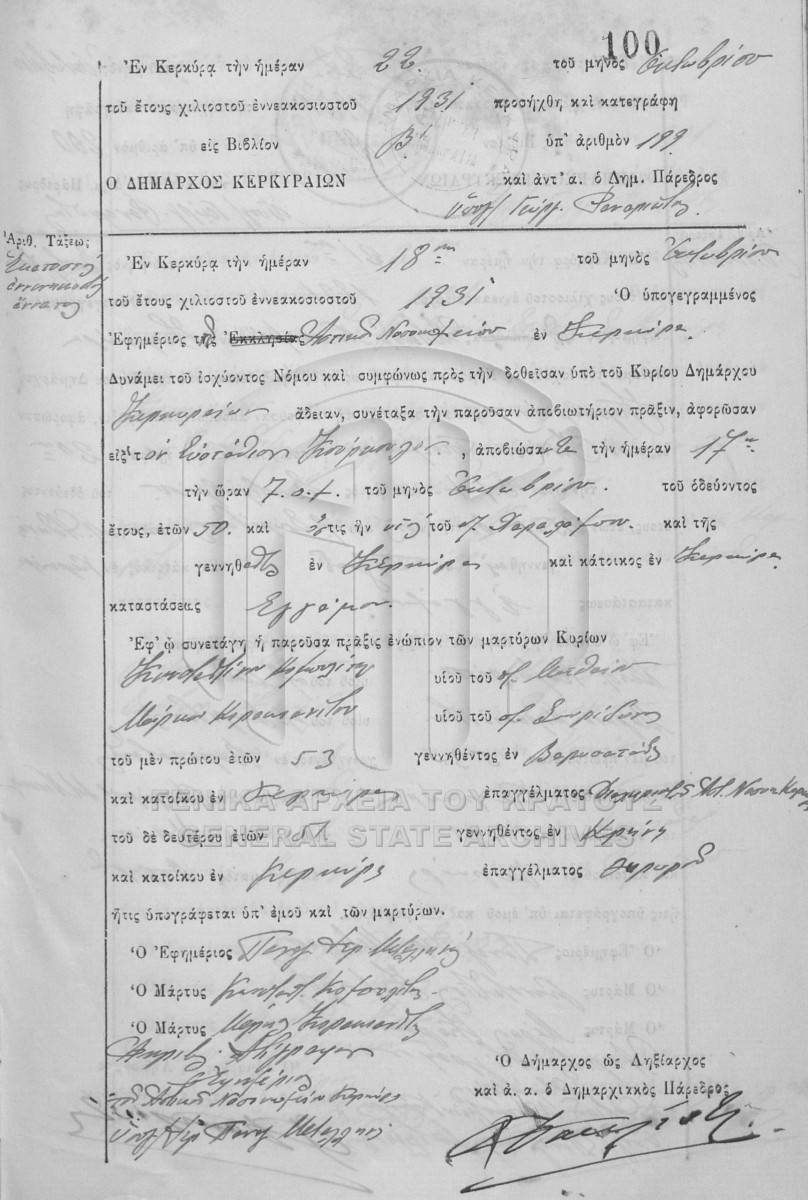 100
Ἐν Κερκύρᾳ τὴν ἡμέραν 22. τοῦ μηνὸς Ὀκτωβρίου
τοῦ ἔτους χιλιοστοῦ ἐννεακοσιοστοῦ 1931 προσήχθη καὶ κατεγράφη
εἰς Βιβλίον Β΄ ὑπ' ἀριθμὸν 199
Ο ΔΗΜΑΡΧΟΣ ΚΕΡΚΥΡΑΙΩΝ καὶ ἀντ' α. ὁ Δημ. Πάρεδρος
Ἀριθ. Τάξεως;
Ἑκατοστὴ
ἐννενηκοστὴ
ἐννάτη
Ἐν Κερκύρᾳ τὴν ἡμέραν 18ην τοῦ μηνὸς Ὀκτωβρίου
τοῦ ἔτους χιλιοστοῦ ἐννεακοσιοστοῦ 1931 Ὁ ὑπογεγραμμένος
Ἐφημέριος τοῦ Ἀστικοῦ Νοσοκομείου ἐν Κερκύρᾳ.
Δυνάμει τοῦ ἰσχύοντος Νόμου καὶ συμφώνως πρὸς τὴν δοθεῖσαν ὑπὸ τοῦ Κυρίου Δημάρχου
Κερκυραίων ἄδειαν, συνέταξα τὴν παροῦσαν ἀποβιωτήριον πρᾶξιν, ἀφορῶσαν
εἰς τὸν Εὐστάθιον , ἀποβιώσαντα τὴν ἡμέραν 17ην
τὴν ὥραν 7 π.μ. τοῦ μηνὸς Ὀκτωβρίου. τοῦ ὁδεύοντος
ἔτους, ἐτῶν 50. καὶ ὅστις ἦν υἱὸς τοῦ π. Χαραλάμπου. καὶ τῆς
γεννηθεὶς ἐν Κερκύρᾳ καὶ κάτοικος ἐν Κερκύρᾳ
καταστάσεως Ἐγγάμου.
Ἐφ' ᾧ συνετάγη ἡ παροῦσα πρᾶξις ἐνώπιον τῶν μαρτύρων Κυρίων
Κωνσταντίνου υἱοῦ τοῦ π. Ματθαίου
Μάρκου υἱοῦ τοῦ π. Σπυρίδωνος
τοῦ μὲν πρώτου ἐτῶν 53 γεννηθέντος ἐν
καὶ κατοίκου ἐν Κερκύρᾳ ἐπαγγέλματος
τοῦ δὲ δευτέρου ἐτῶν 51 γεννηθέντος ἐν
καὶ κατοίκου ἐν Κερκύρᾳ ἐπαγγέλματος θυρωροῦ
ἥτις ὑπογράφεται ὑπ' ἐμοῦ καὶ τῶν μαρτύρων.
Ὁ Ἐφημέριος
Ὁ Μάρτυς
Ὁ Μάρτυς
Ἀκριβὲς Ἀντίγραφον
Ὁ Ἐφημέριος
τοῦ Ἀστικοῦ Νοσοκομείου Κερκύρας
Ὁ Δήμαρχος ὡς Ληξίαρχος
καὶ ἀ. α. ὁ Δημαρχιακὸς Πάρεδρος
ΓΕΝΙΚΑ ΑΡΧΕΙΑ ΤΟΥ ΚΡΑΤΟΥΣ
GENERAL STATE ARCHIVES